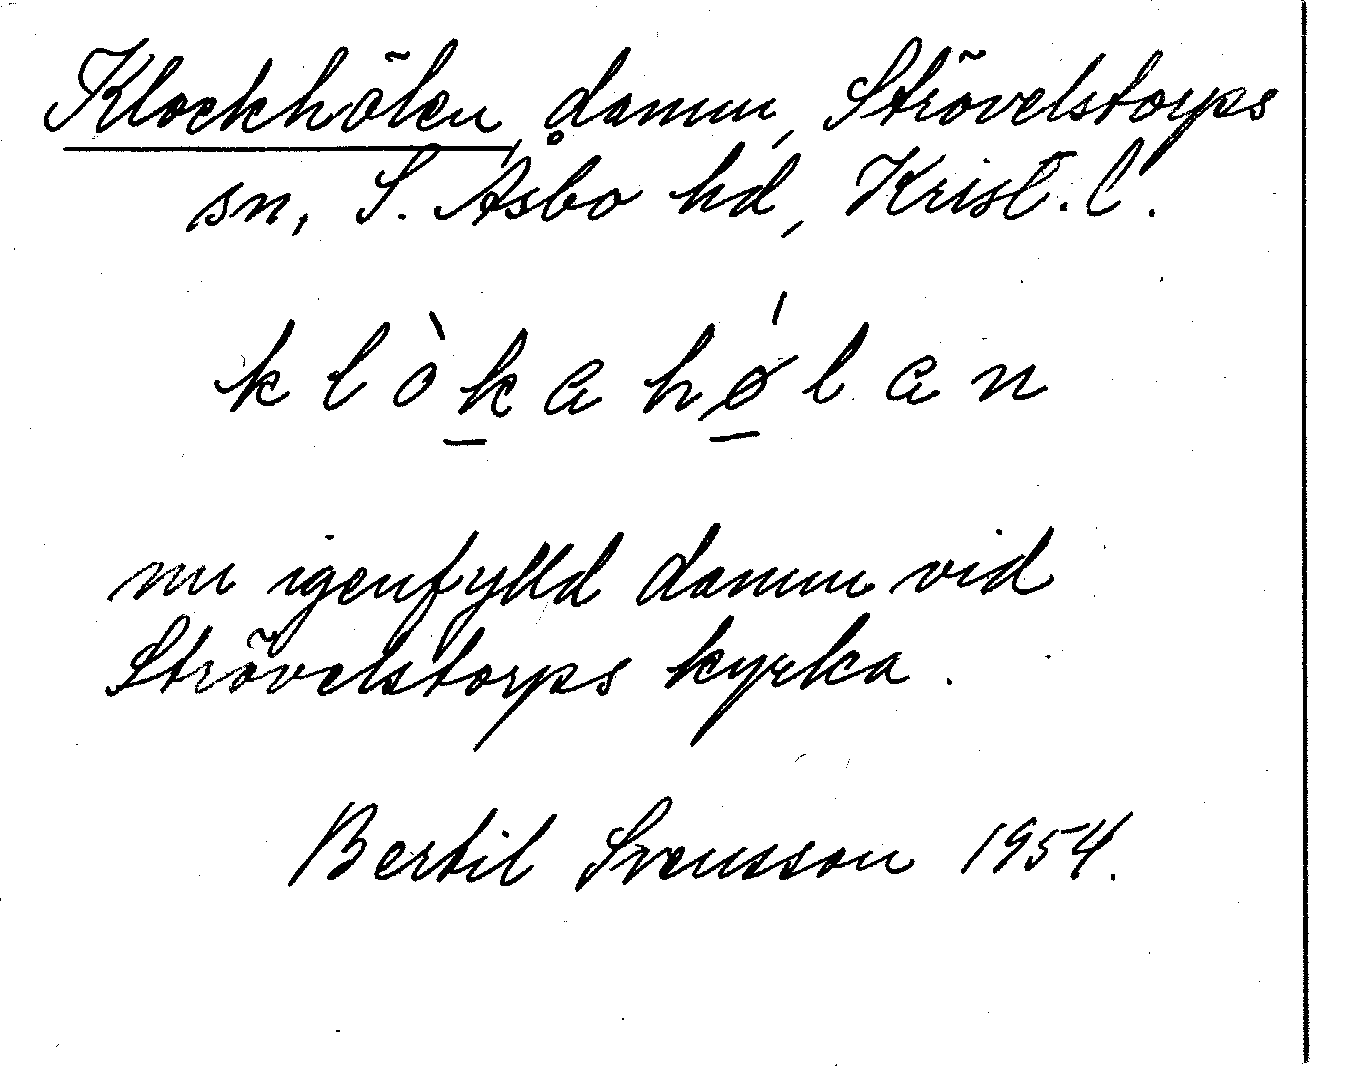 Klockhölen, damm, Strövelstorps
sn, S. Åsbo hd, Krist. l.
klòkahǿlan
nu igenfylld damm vid
Strövelstorps kyrka.
Bertil Svensson 1954.